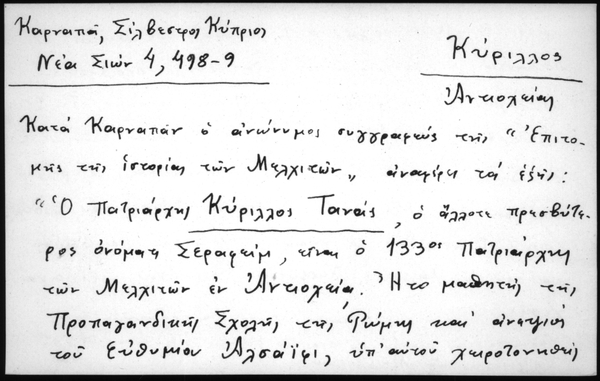 Καρναπᾶ, Σίλβεστρος Κύπριος
Νέα Σιών 4, 498-9
Κύριλλος
Ἀντιοχείας
Κατά Καρναπᾶν ὁ ἀνώνυμος συγγραφεύς τῆς "Ἐπιτο-
μῆς τῆς ἱστορίας τῶν Μελχιτῶν" ἀναφέρει τά ἑξῆς:
"Ὁ Πατριάρχης Κύριλλος Τανάς, ὁ ἄλλοτε πρεσβύτε-
ρος ὀνόματι Σεραφείμ, εἶναι ὁ 133ος Πατριάρχης
τῶν Μελχιτῶν ἐν Ἀντιοχείᾳ. Ἦτο μαθητής τῆς
Προπαγανδικῆς Σχολῆς τῆς Ῥώμης καί ἀνεψιός
τοῦ Εὐθυμίου Ἀλσαΐφι, ὑπ' αὐτοῦ χειροτονηθείς